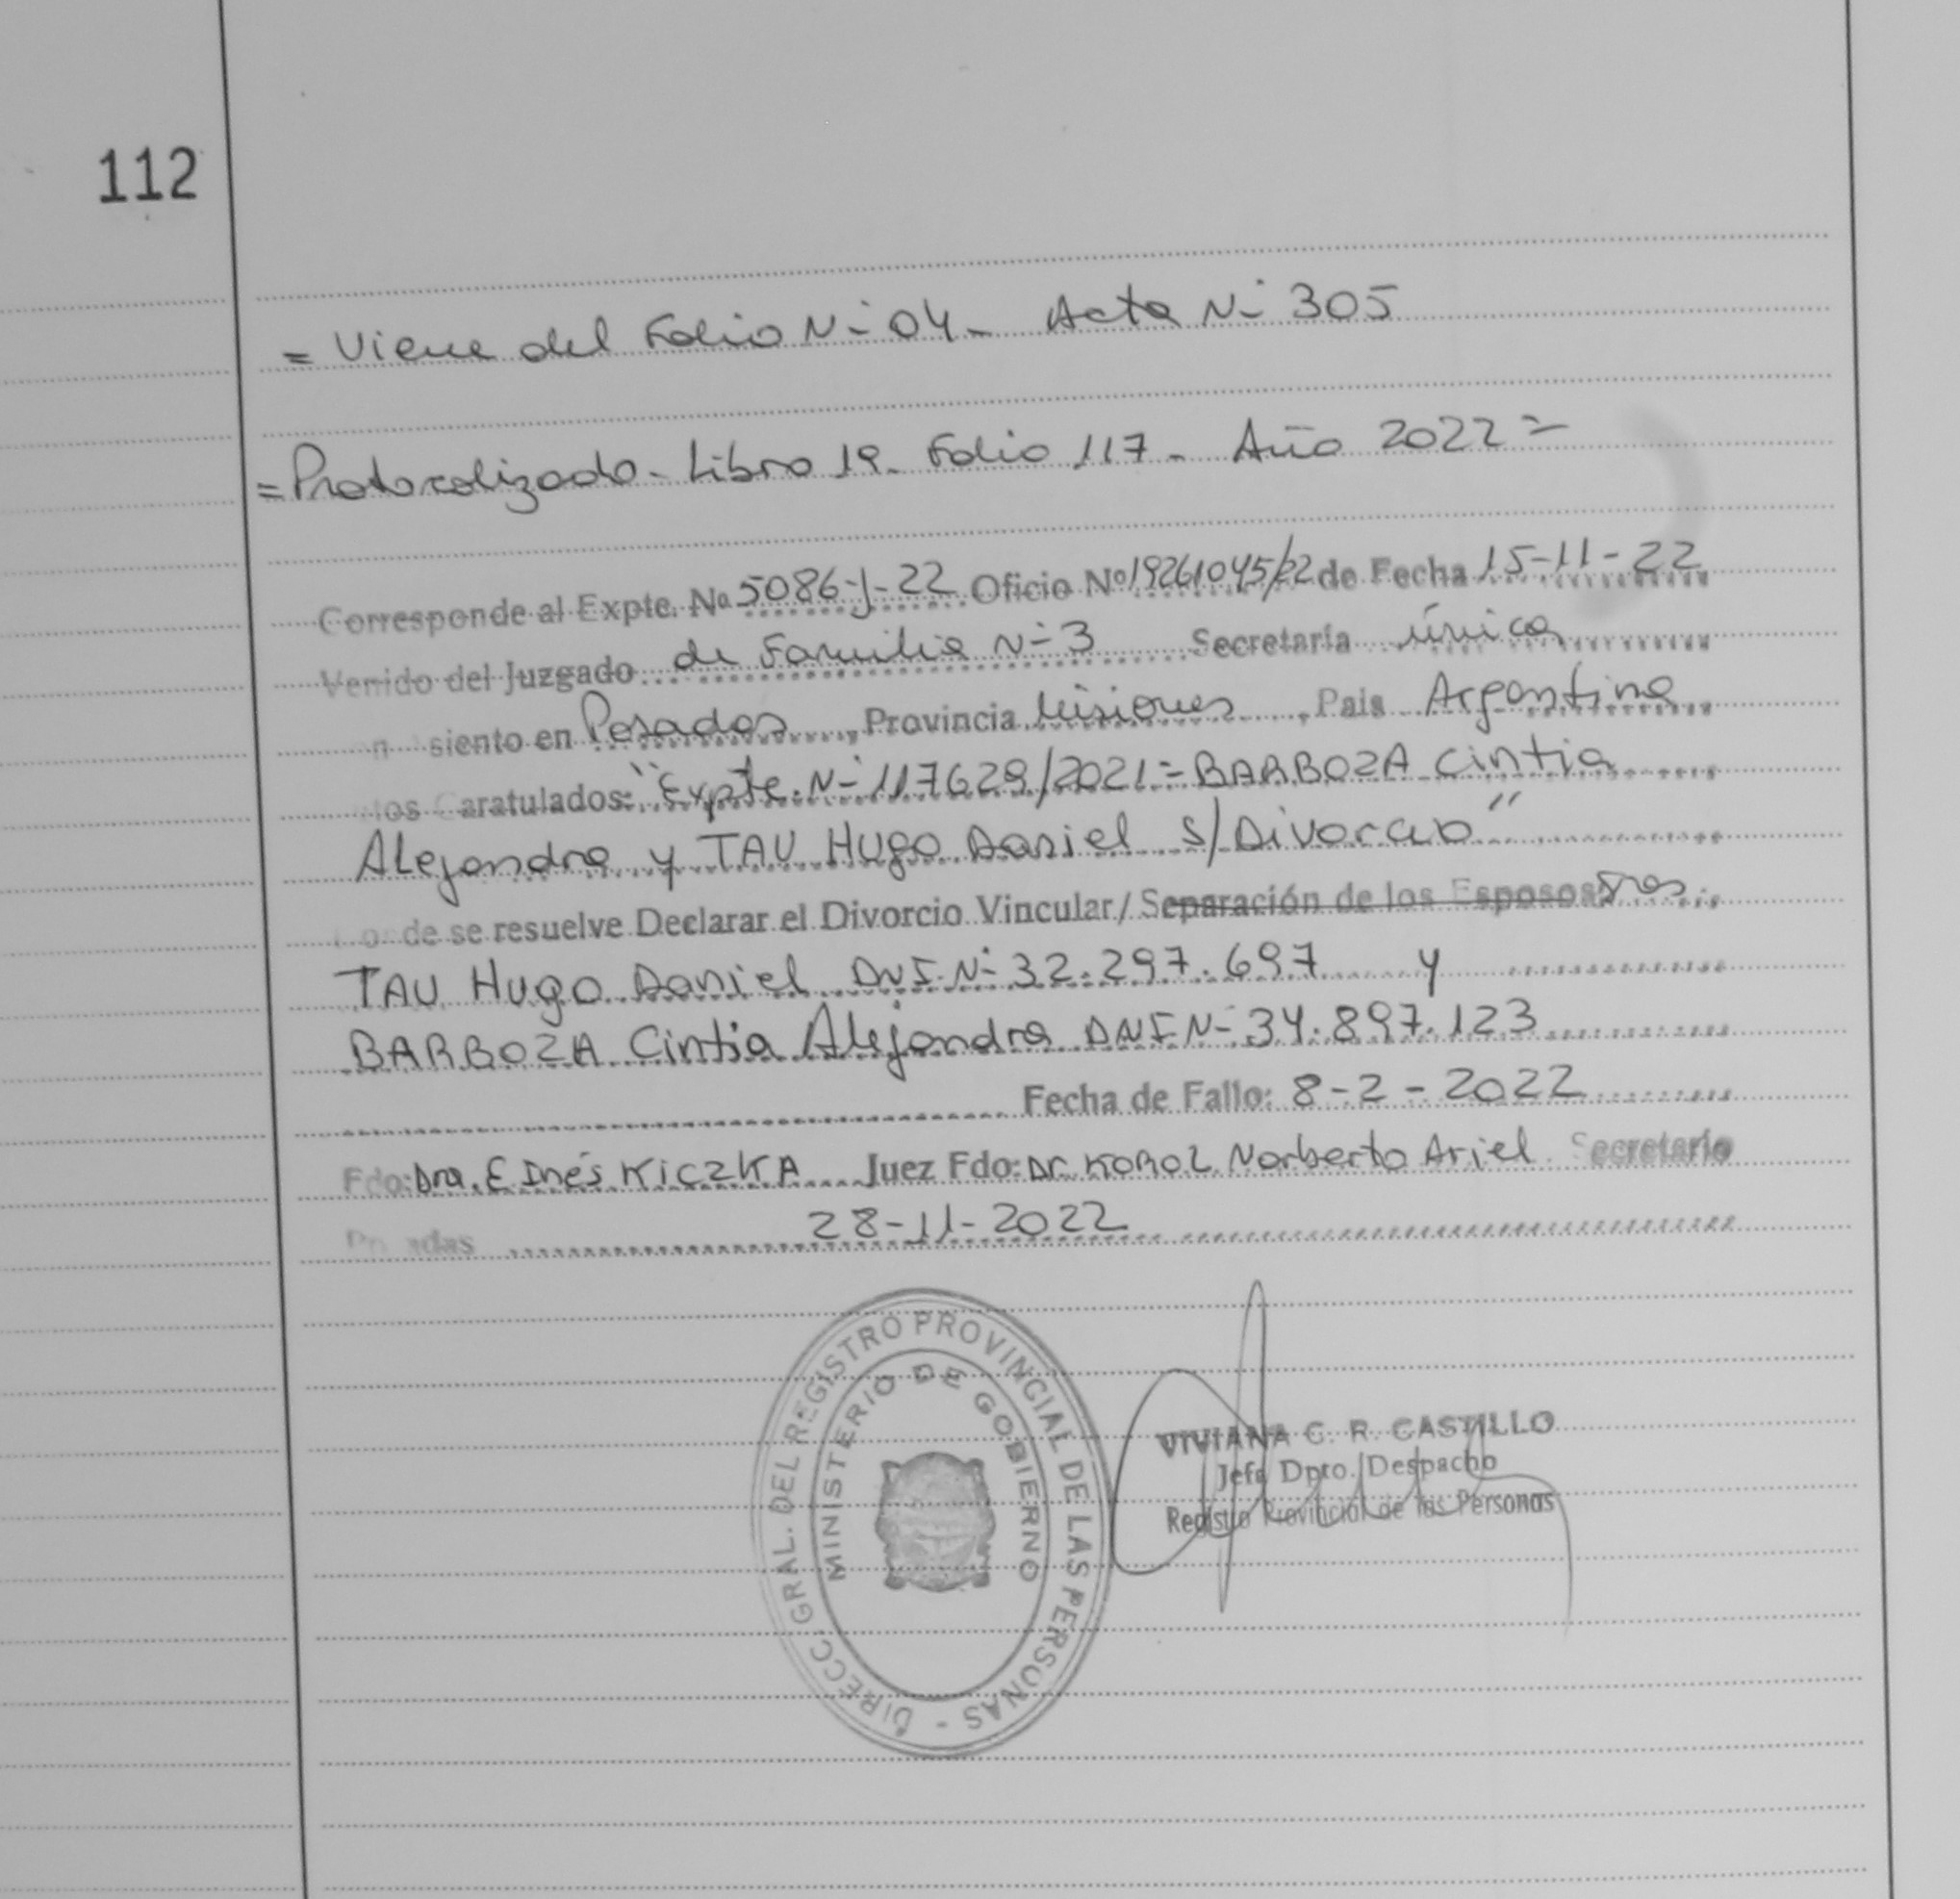 112
= Viene del Folio N- 04 - Acta N- 305
= Protocolizado - Libro 19 - Folio 117 - Año 2022 =
Corresponde al Expte. Nº 5086-J-22 Oficio Nº 19261045/22 de Fecha 15-11-22
Venido del Juzgado de Familia N- 3 Secretaría única
n siento en Posadas, Provincia Misiones, Pais Argentina
tos Caratulados: "Expte. N- 117629/2021 = BARBOZA Cintia
Alejandra y TAU Hugo Daniel S/Divorcio"
o de se resuelve Declarar el Divorcio Vincular/ Separación de los Esposos Sres.
TAU Hugo Daniel DNI N- 32.297.697 y
BARBOZA Cintia Alejandra DNI N- 34.897.123
Fecha de Fallo: 8-2-2022
Fdo: Dra. E Inés KICZKA Juez Fdo: Dr. KOROL Norberto Ariel Secretario
Po adas 28-11-2022
DIRECC. GRAL. DEL REGISTRO PROVINCIAL DE LAS PERSONAS -
MINISTERIO DE GOBIERNO
VIVIANA C. R. CASTILLO
Jefa Dpto. Despacho
Registro Provincial de las Personas